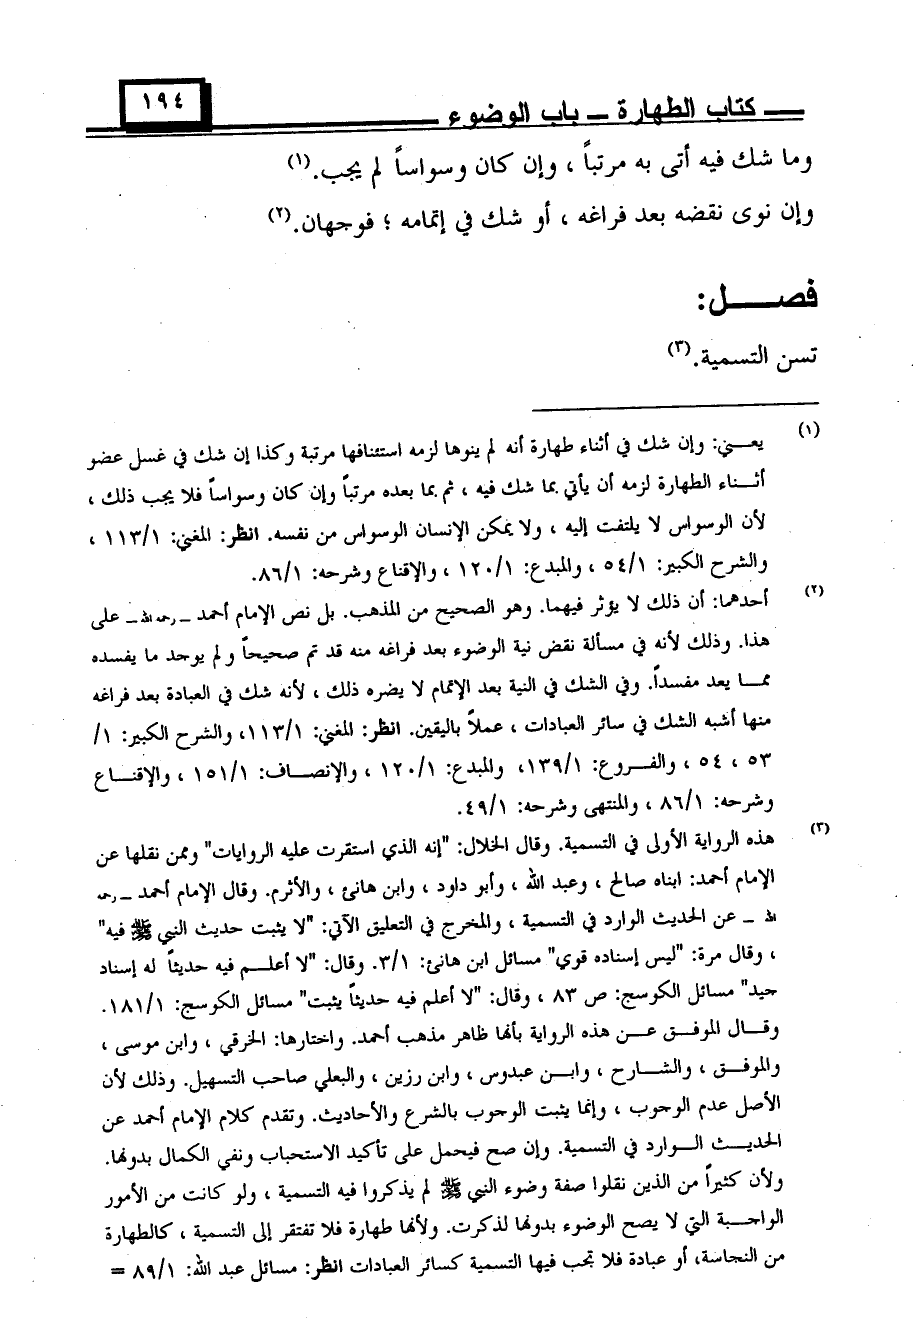 كتاب الطهارة – باب الوضوء
١٩٤
وما شك فيه أتى به مرتباً ، وإن كان وسواساً لم يجب.(١)
وإن نوى نقضه بعد فراغه ، أو شك في إتمامه ؛ فوجهان.(٢)
فصـــل:
تسن التسمية.(٣)
(١) يعـني: وإن شك في أثناء طهارة أنه لم ينوها لزمه استئنافها مرتبة وكذا إن شك في غسل عضو
أثـناء الطهارة لزمه أن يأتي بما شك فيه ، ثم بما بعده مرتباً وإن كان وسواساً فلا يجب ذلك ،
لأن الوسواس لا يلتفت إليه ، ولا يمكن الإنسان الوسواس من نفسه. انظر: المغني: ١١٣/١ ،
والشرح الكبير: ٥٤/١ ، والمبدع: ١٢٠/١ ، والإقناع وشرحه: ٨٦/١.
(٢) أحدهما: أن ذلك لا يؤثر فيهما. وهو الصحيح من المذهب. بل نص الإمام أحمد – رحمه الله – على
هذا. وذلك لأنه في مسألة نقض نية الوضوء بعد فراغه منه قد تم صحيحاً و لم يوجد ما يفسده
ممـا يعد مفسداً. وفي الشك في النية بعد الإتمام لا يضره ذلك ، لأنه شك في العبادة بعد فراغه
منها أشبه الشك في سائر العبادات ، عملاً باليقين. انظر: المغني: ١١٣/١، والشرح الكبير: ١/
٥٣ ، ٥٤ ، والفـروع: ١٣٩/١، والمبدع: ١٢٠/١ ، والإنصـاف: ١٥١/١ ، والإقنـاع
وشرحه: ٨٦/١ ، والمنتهى وشرحه: ٤٩/١.
(٣) هذه الرواية الأولى في التسمية. وقال الخلال: "إنه الذي استقرت عليه الروايات" وممن نقلها عن
الإمام أحمد: ابناه صالح ، وعبد الله ، وأبو داود ، وابن هانئ ، والأثرم. وقال الإمام أحمد – رحمه
الله – عن الحديث الوارد في التسمية ، والمخرج في التعليق الآتي: "لا يثبت حديث النبي ﷺ فيه"
، وقال مرة: "ليس إسناده قوي" مسائل ابن هانئ: ٣/١. وقال: "لا أعلـم فيه حديثاً له إسناد
جيد" مسائل الكوسج: ص ٨٣ ، وقال: "لا أعلم فيه حديثاً يثبت" مسائل الكوسج: ١٨١/١.
وقـال الموفق عـن هذه الرواية بأنها ظاهر مذهب أحمد. واختارها: الخرقي ، وابن موسى ،
والموفـق ، والشـارح ، وابـن عبدوس ، وابن رزين ، والبعلي صاحب التسهيل. وذلك لأن
الأصل عدم الوجوب ، وإنما يثبت الوجوب بالشرع والأحاديث. وتقدم كلام الإمام أحمد عن
الحديـث الـوارد في التسمية. وإن صح فيحمل على تأكيد الاستحباب ونفي الكمال بدونها.
ولأن كثيراً من الذين نقلوا صفة وضوء النبي ﷺ لم يذكروا فيه التسمية ، ولو كانت من الأمور
الواجـبة التي لا يصح الوضوء بدونها لذكرت. ولأنها طهارة فلا تفتقر إلى التسمية ، كالطهارة
من النجاسة، أو عبادة فلا تجب فيها التسمية كسائر العبادات انظر: مسائل عبد الله: ٨٩/١ =